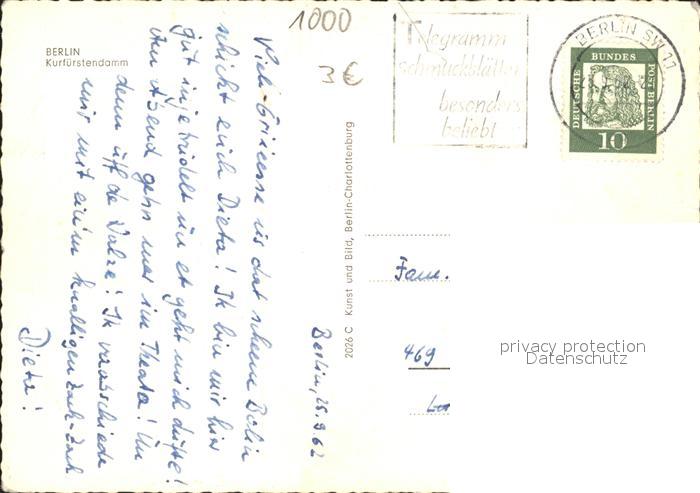 BERLIN
Kurfürstendamm
1000
3€
Telegramm
schmuckblätter
besonders
beliebt
BERLIN SW 11
DEUTSCHE BUNDES POST BERLIN
10
Viele Grüeesse us dat scheene Berlin
schickt euch Dieta! Ik bin mir hier
gut und et geht mich dufte!
den Abend gehn wer im Theata! Un
denn uff de Walze! Ik verabschiede
mir mit einem knalligen Zack-Zack
Dieta!
Berlin, 25.9.62
2026 C Kunst und Bild, Berlin-Charlottenburg
Fam.
469
privacy protection
Datenschutz